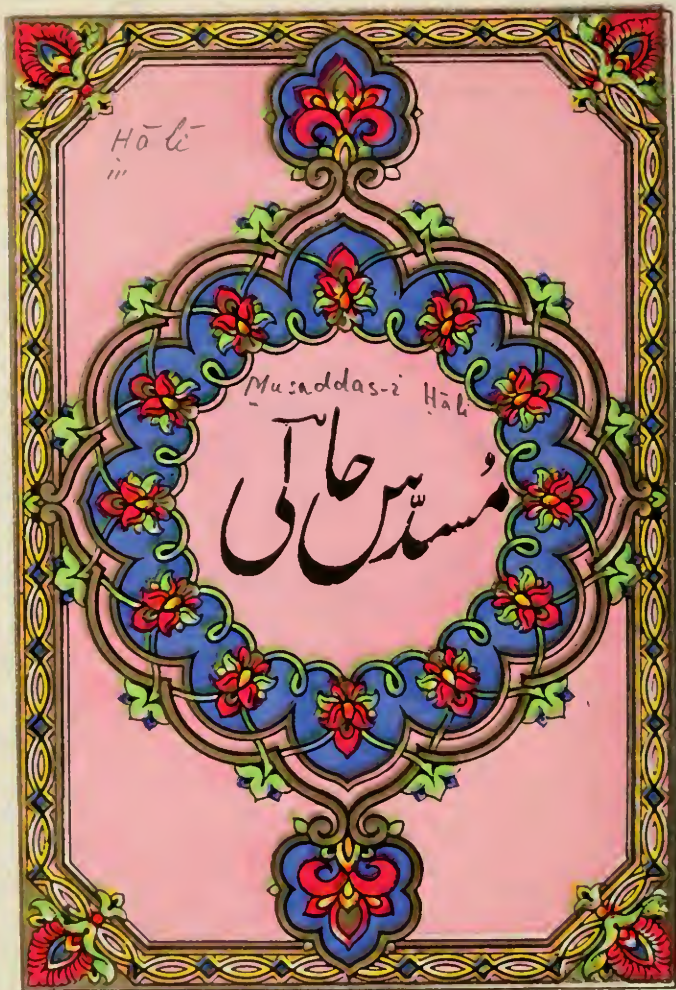 Hālī
iii
Musaddas-i Ḥālī
مُسدّسِ حالیؔ